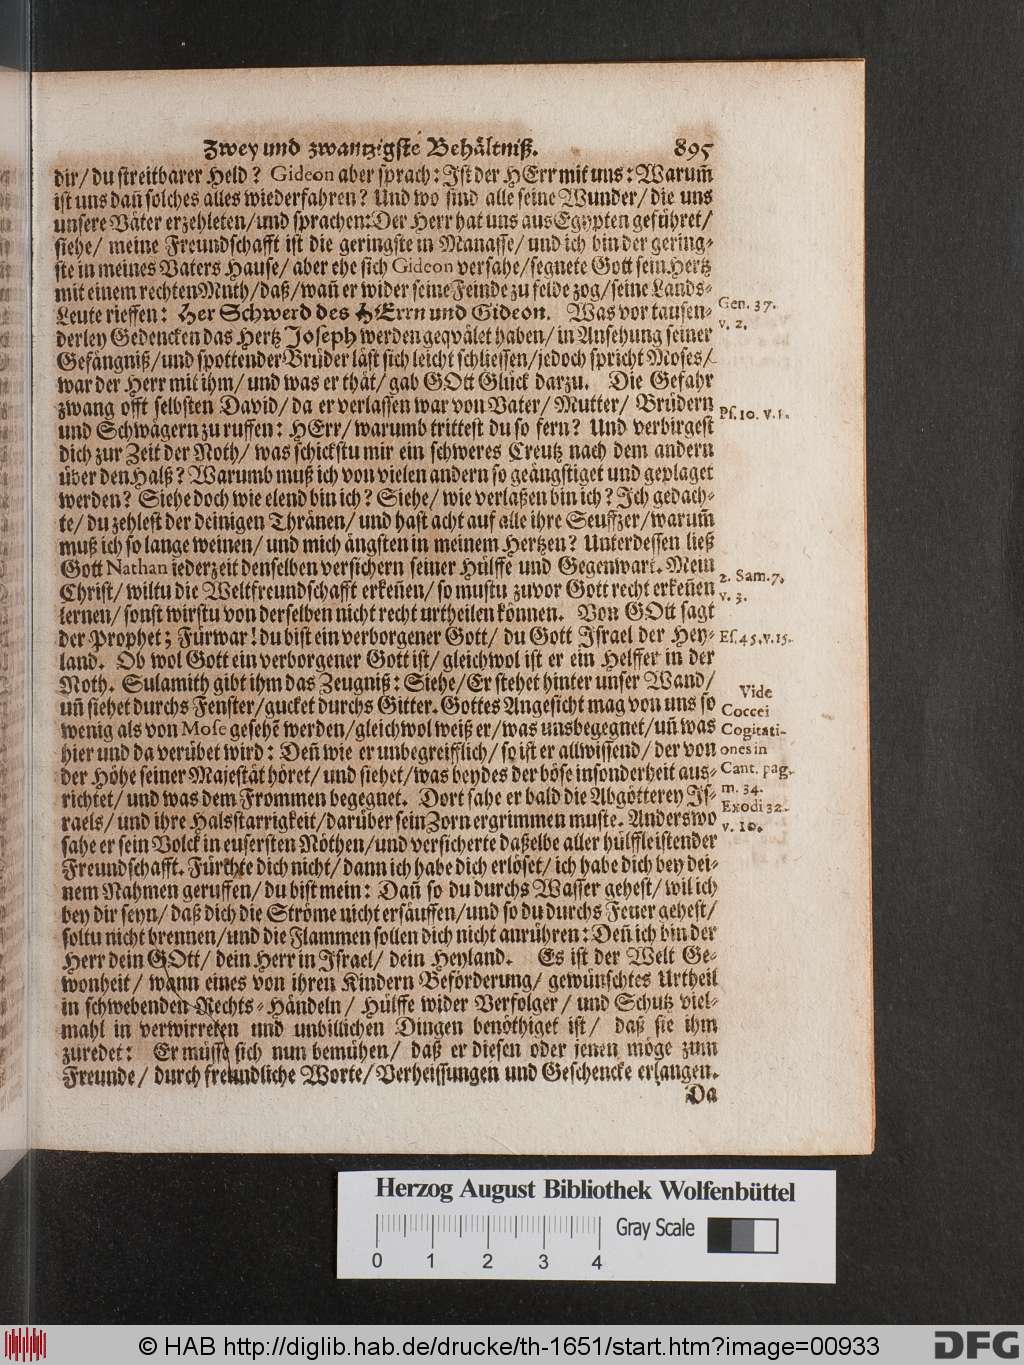 Zwey und zwantzigste Behältniß. 895
dir/ du streitbarer Held? Gideon aber sprach: Ist der HErr mit uns: Warum̃
ist uns dañ solches alles wiederfahren? Und wo sind alle seine Wunder/ die uns
unsere Väter erzehleten/ und sprachen: Der Herr hat uns aus Egypten geführet/
siehe/ meine Freundschafft ist die geringste in Manasse/ und ich bin der gering-
ste in meines Vaters Hause/ aber ehe sich Gideon versahe/ segnete Gott sein Hertz
mit einem rechten Muth/ daß/ wañ er wider seine Feinde zu felde zog/ seine Lands-
Leute rieffen: Her Schwerd des HErrn und Gideon. Was vor tausen-
derley Gedencken das Hertz Joseph werden geqvälet haben/ in Ansehung seiner
Gefängniß/ und spottender Brüder läst sich leicht schliessen/ jedoch spricht Moses/
war der Herr mit ihm/ und was er thät/ gab GOtt Glück darzu. Die Gefahr
zwang offt selbsten David/ da er verlassen war von Vater/ Mutter/ Brüdern
und Schwägern zu ruffen: HErr/ warumb trittest du so fern? Und verbirgest
dich zur Zeit der Noth/ was schickstu mir ein schweres Creutz nach dem andern
über den Halß? Warumb muß ich von vielen andern so geängstiget und geplaget
werden? Siehe doch wie elend bin ich? Siehe/ wie verlaßen bin ich? Ich gedach-
te/ du zehlest der deinigen Thränen/ und hast acht auf alle ihre Seuffzer/ warum̃
muß ich so lange weinen/ und mich ängsten in meinem Hertzen? Unterdessen ließ
Gott Nathan iederzeit denselben versichern seiner Hülffe und Gegenwart. Mein
Christ/ wiltu die Weltfreundschafft erkeñen/ so mustu zuvor Gott recht erkeñen
lernen/ sonst wirstu von derselben nicht recht urtheilen können. Von GOtt sagt
der Prophet; Fürwar! du bist ein verborgener Gott/ du Gott Israel der Hey-
land. Ob wol Gott ein verborgener Gott ist/ gleichwol ist er ein Helffer in der
Noth. Sulamith gibt ihm das Zeugniß: Siehe/ Er stehet hinter unser Wand/
uñ siehet durchs Fenster/ gucket durchs Gitter. Gottes Angesicht mag von uns so
wenig als von Mose gesehẽ werden/ gleichwol weiß er/ was uns begegnet/ uñ was
hier und da verübet wird: Deñ wie er unbegreifflich/ so ist er allwissend/ der von
der Höhe seiner Majestät höret/ und siehet/ was beydes der böse insonderheit aus-
richtet/ und was dem Frommen begegnet. Dort sahe er bald die Abgötterey Is-
raels/ und ihre Halsstarrigkeit/ darüber sein Zorn ergrimmen muste. Anderswo
sahe er sein Volck in eusersten Nöthen/ und versicherte daßelbe aller hülffleistender
Freundschafft. Fürchte dich nicht/ dann ich habe dich erlöset/ ich habe dich bey dei-
nem Nahmen geruffen/ du bist mein: Dañ so du durchs Wasser gehest/ wil ich
bey dir seyn/ daß dich die Ströme nicht ersäuffen/ und so du durchs Feuer gehest/
soltu nicht brennen/ und die Flammen sollen dich nicht anrühren: Deñ ich bin der
Herr dein GOtt/ dein Herr in Israel/ dein Heyland. Es ist der Welt Ge-
wonheit/ wann eines von ihren Kindern Beförderung/ gewünschtes Urtheil
in schwebenden Rechts-Händeln/ Hülffe wider Verfolger/ und Schutz viel-
mahl in verwirreten und unbillichen Dingen benöthiget ist/ daß sie ihm
zuredet: Er müsse sich nun bemühen/ daß er diesen oder jenen möge zum
Freunde/ durch freundliche Worte/ Verheissungen und Geschencke erlangen.
Da
Gen. 37.
v. 2.
Ps. 10. v. 1.
2. Sam. 7.
v. 3.
Es. 45. v. 15.
Vide
Coccei
Cogitati-
ones in
Cant. pag.
m. 34.
Exodi 32.
v. 10.
Herzog August Bibliothek Wolfenbüttel
0 1 2 3 4
Gray Scale
© HAB http://diglib.hab.de/drucke/th-1651/start.htm?image=00933
DFG